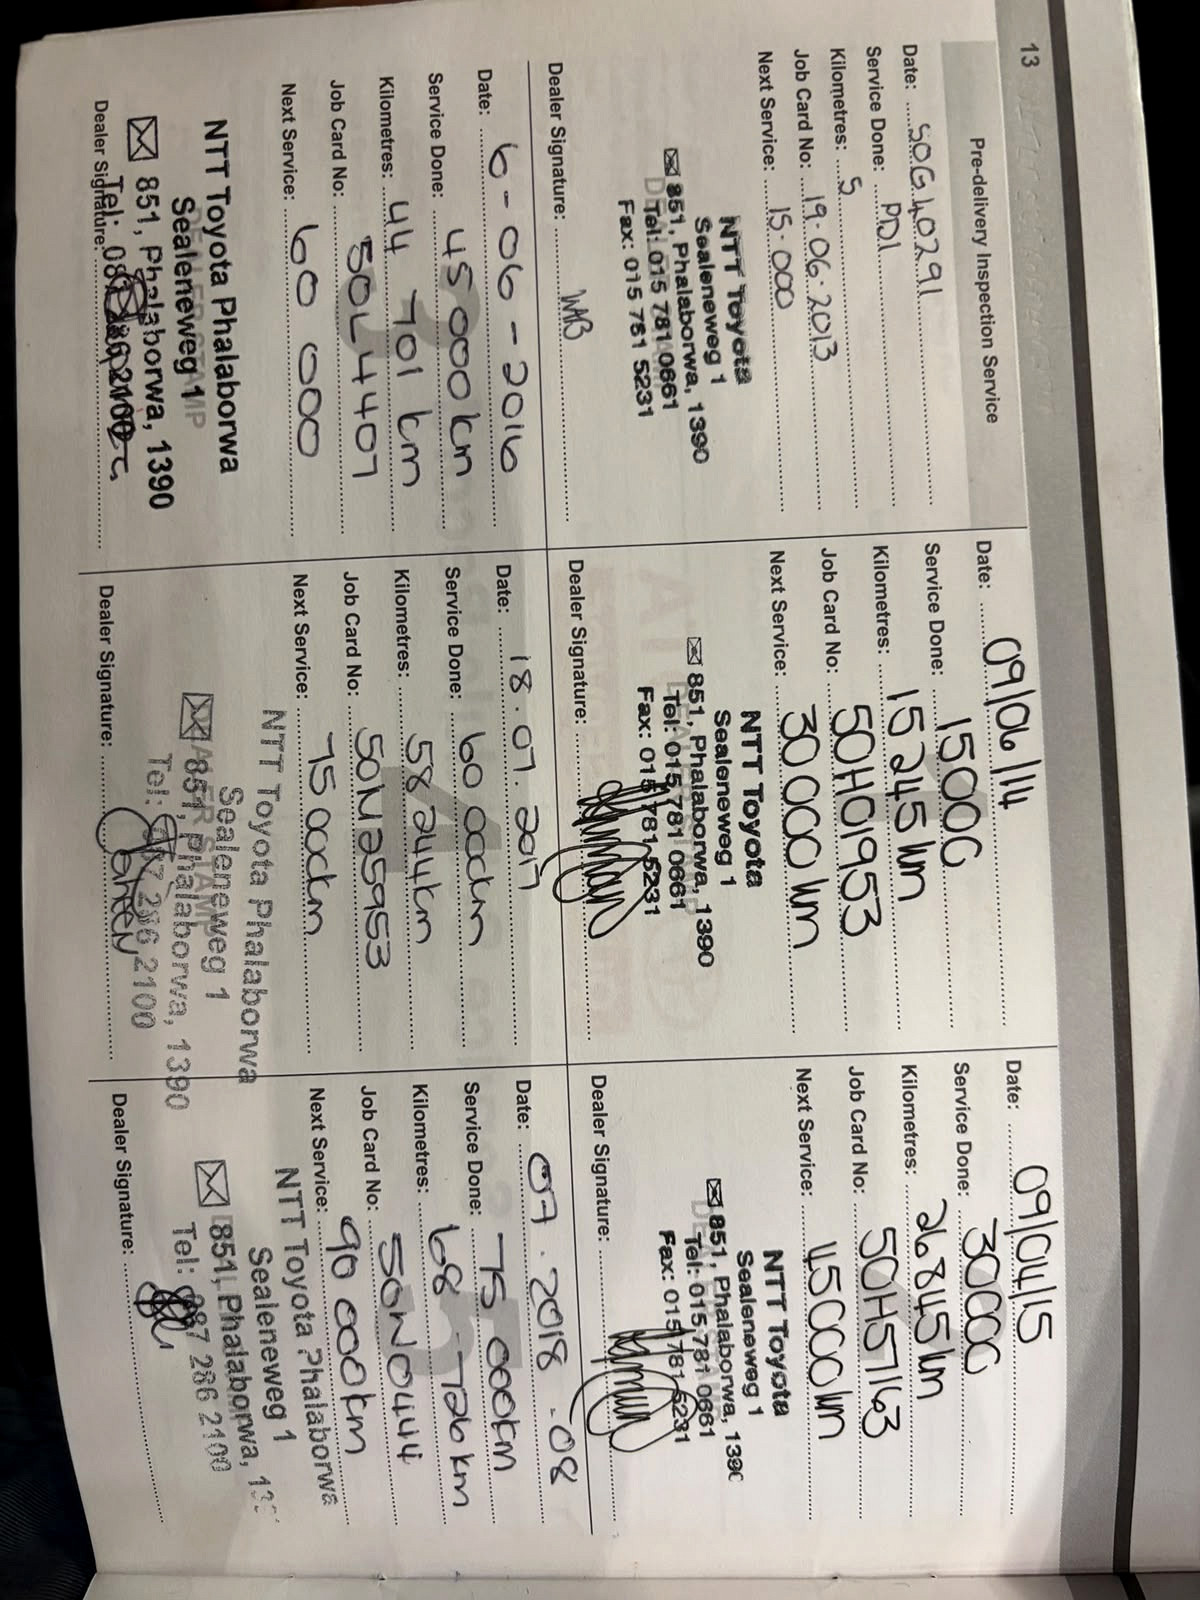 13
Pre-delivery Inspection Service
Date: 50G40291
Service Done: PDI
Kilometres: 5
Job Card No: 19.06.2013
Next Service: 15.000
NTT Toyota
Sealeneweg 1
851, Phalaborwa, 1390
Tel: 015 781 0661
Fax: 015 781 5231
Dealer Signature: WAB
Date: 09/06/14
Service Done: 15000
Kilometres: 15245 km
Job Card No: 50H01953
Next Service: 30000 km
NTT Toyota
Sealeneweg 1
851, Phalaborwa, 1390
Tel: 015 781 0661
Fax: 015 781 5231
Dealer Signature:
Date: 09/04/15
Service Done: 30000
Kilometres: 26845 km
Job Card No: 50H57163
Next Service: 45000 km
NTT Toyota
Sealeneweg 1
851, Phalaborwa, 1390
Tel: 015 781 0661
Fax: 015 781 5231
Dealer Signature:
Date: 6-06-2016
Service Done: 45 000 km
Kilometres: 44 701 km
Job Card No: 50L4407
Next Service: 60 000
NTT Toyota Phalaborwa
Sealeneweg 1
851, Phalaborwa, 1390
Tel: 087 286 2100
Dealer Signature:
Date: 18.07.2017
Service Done: 60 000km
Kilometres: 58 244km
Job Card No: 50N25953
Next Service: 75 000km
NTT Toyota Phalaborwa
Sealeneweg 1
851, Phalaborwa, 1390
Tel: 087 286 2100
Dealer Signature:
Date: 07.2018.08
Service Done: 75 000km
Kilometres: 68 726 km
Job Card No: 50N0444
Next Service: 90 000km
NTT Toyota Phalaborwa
Sealeneweg 1
851, Phalaborwa, 139
Tel: 087 286 2100
Dealer Signature: